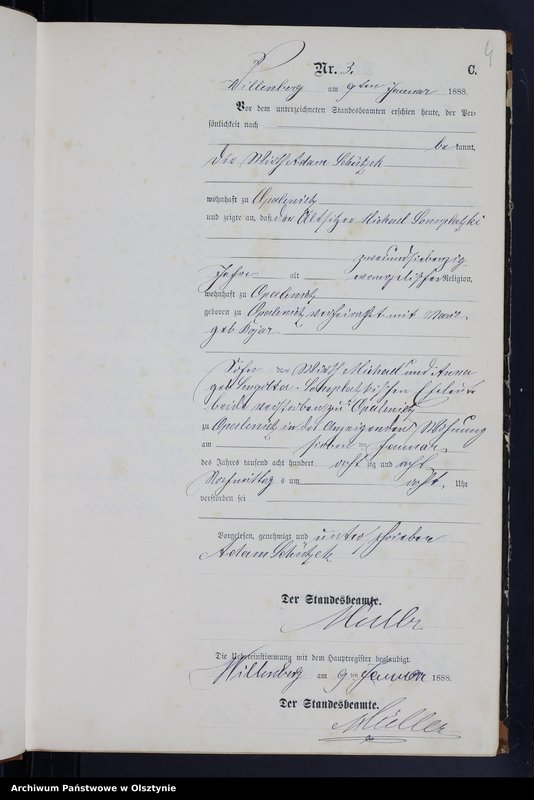 4
Nr. 3. C.
Willenberg am 9ten Januar 1888.
Vor dem unterzeichneten Standesbeamten erschien heute, der Per-
sönlichkeit nach
be kannt,
der Wirth Adam Schützek
wohnhaft zu Opalenietz
und zeigte an, daß der Altsitzer Michael Somplatzki
zweiundsiebenzig
Jahre alt evangelischer Religion,
wohnhaft zu Opalenietz
geboren zu Opalenietz verheirathet mit Marie
geb Kojar
Sohn der Wirth Michael und Anna
geb Somplatzkischen Eheleute
beide verstorben zu Opalenietz
zu Opalenietz in des Anzeigenden Wohnung
am sieben ten Januar
des Jahres tausend acht hundert acht zig und acht
Nachmittag s um acht Uhr
verstorben sei
Vorgelesen, genehmigt und unterschrieben
Adam Schützek
Der Standesbeamte.
Müller
Die Uebereinstimmung mit dem Hauptregister beglaubigt.
Willenberg am 9ten Januar 1888.
Der Standesbeamte.
Müller
Archiwum Państwowe w Olsztynie